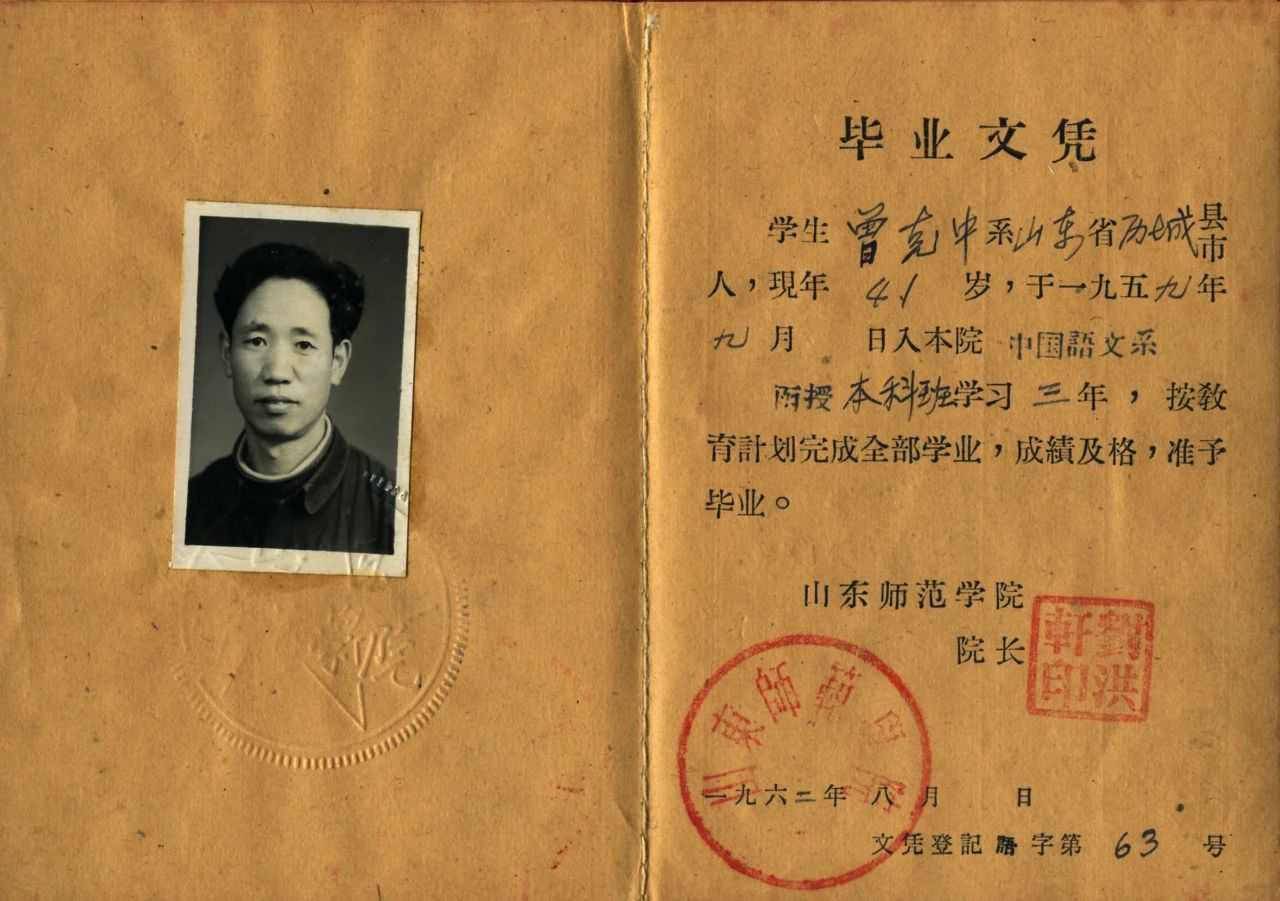 毕业文凭
学生 曾克中 系山东省历城县市
人，現年 41 岁，于一九五九年
九月 日入本院 中国語文系
面授本科班学习三年，按教
育計划完成全部学业，成績及格，准予
毕业。
山东师范学院
院长
劉洪
軒印
山東師範學院
一九六二年八月 日
文凭登記語字第 63 号
學院